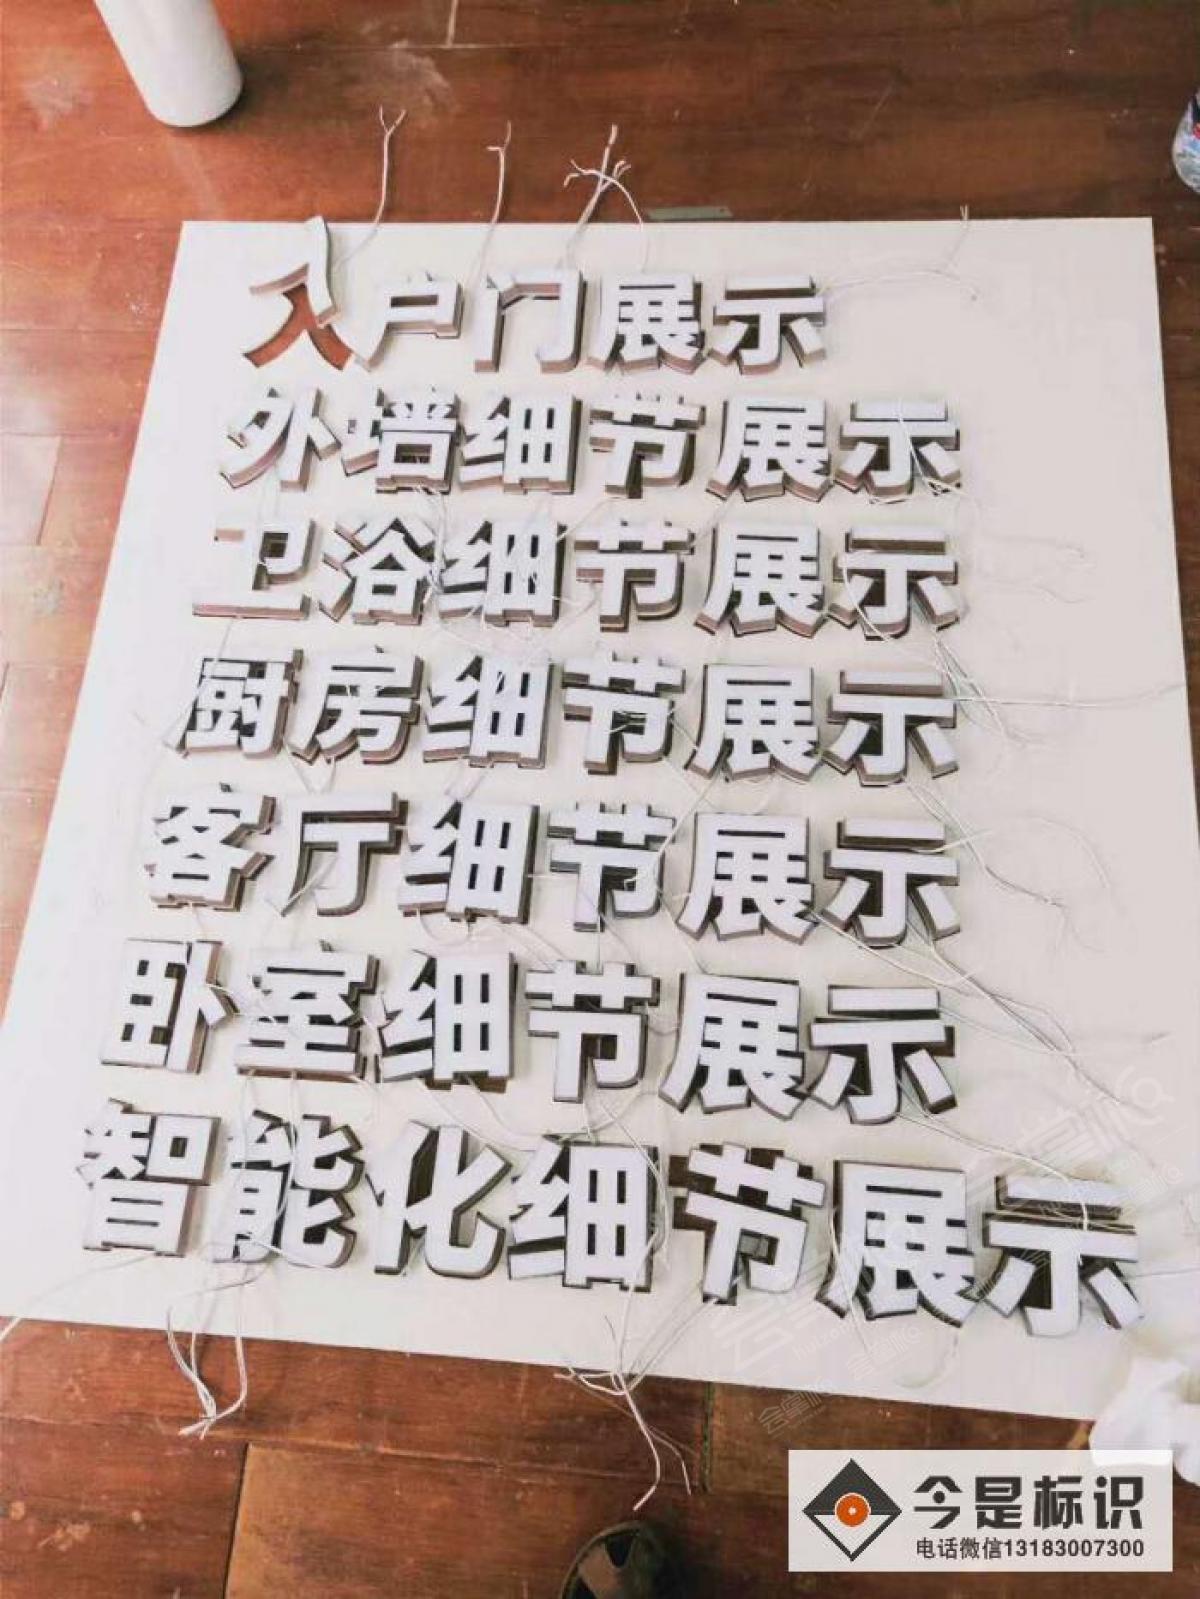 入户门展示
外墙细节展示
卫浴细节展示
厨房细节展示
客厅细节展示
卧室细节展示
智能化细节展示
今是标识
电话微信13183007300